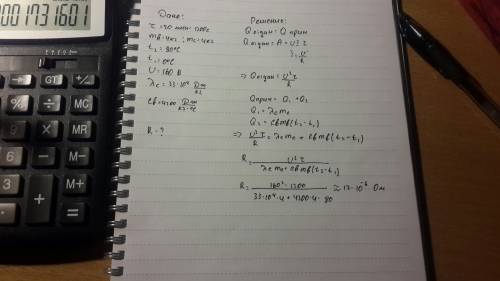 000131601
GT
%
MR
M-
M+
Дано:
τ = 20 мин = 1200с
mв = 4кг ; mс = 4кг
t₂ = 80°C
t₁ = 0°C
U = 160 В
λс = 33·10⁴ Дж/кг
Cв = 4200 Дж/кг·°C
R - ?
Решение:
Qотдан = Qприн
Qотдан = A = UIτ
I = U/R
=> Qотдан = U²τ/R
Qприн = Q₁ + Q₂
Q₁ = λс mс
Q₂ = Cв mв (t₂ - t₁)
=> U²τ/R = λс mс + Cв mв (t₂ - t₁)
R = U²τ / λс mс + Cв mв (t₂ - t₁)
R = 160² · 1200 / 33·10⁴·4 + 4200·4·80 ≈ 13·10⁻⁶ Ом